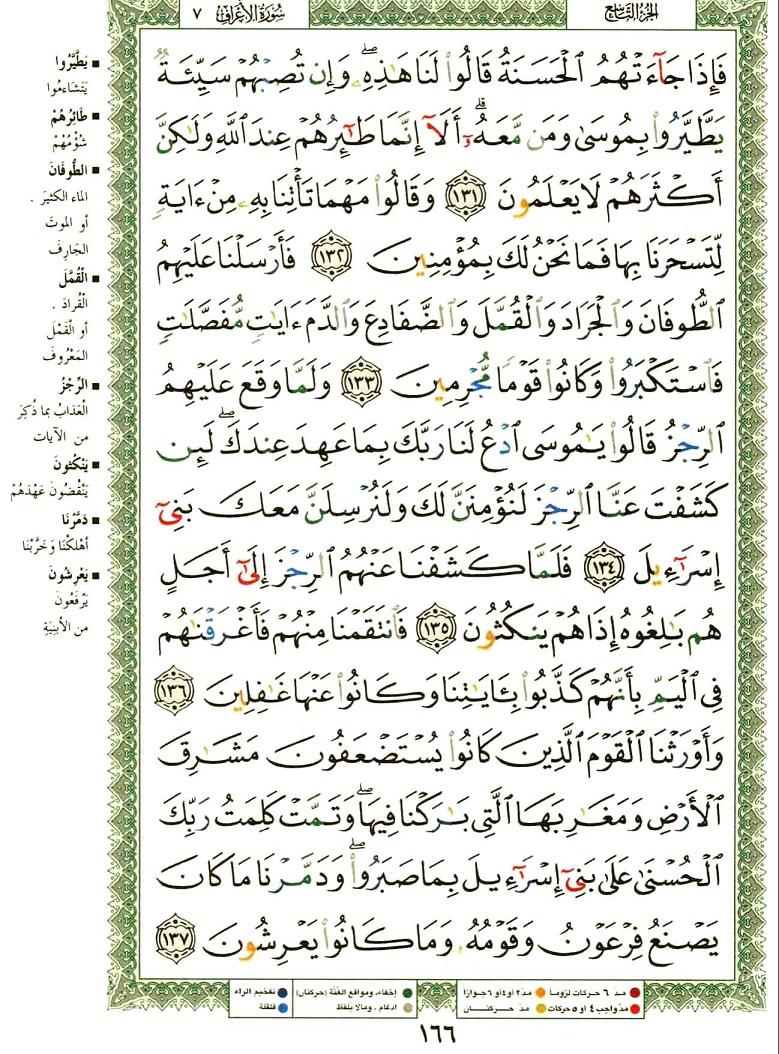 الجزء التاسع
سورة الأعراف
٧
فَإِذَا جَآءَتْهُمُ ٱلْحَسَنَةُ قَالُوا۟ لَنَا هَٰذِهِۦ ۖ وَإِن تُصِبْهُمْ سَيِّئَةٌ
يَطَّيَّرُوا۟ بِمُوسَىٰ وَمَن مَّعَهُۥٓ ۗ أَلَآ إِنَّمَا طَٰٓئِرُهُمْ عِندَ ٱللَّهِ وَلَٰكِنَّ
أَكْثَرَهُمْ لَا يَعْلَمُونَ ١٣١ وَقَالُوا۟ مَهْمَا تَأْتِنَا بِهِۦ مِنْ ءَايَةٍ
لِّتَسْحَرَنَا بِهَا فَمَا نَحْنُ لَكَ بِمُؤْمِنِينَ ١٣٢ فَأَرْسَلْنَا عَلَيْهِمُ
ٱلطُّوفَانَ وَٱلْجَرَادَ وَٱلْقُمَّلَ وَٱلضَّفَادِعَ وَٱلدَّمَ ءَايَٰتٍ مُّفَصَّلَٰتٍ
فَٱسْتَكْبَرُوا۟ وَكَانُوا۟ قَوْمًا مُّجْرِمِينَ ١٣٣ وَلَمَّا وَقَعَ عَلَيْهِمُ
ٱلرِّجْزُ قَالُوا۟ يَٰمُوسَى ٱدْعُ لَنَا رَبَّكَ بِمَا عَهِدَ عِندَكَ ۖ لَئِن
كَشَفْتَ عَنَّا ٱلرِّجْزَ لَنُؤْمِنَنَّ لَكَ وَلَنُرْسِلَنَّ مَعَكَ بَنِىٓ
إِسْرَٰٓءِيلَ ١٣٤ فَلَمَّا كَشَفْنَا عَنْهُمُ ٱلرِّجْزَ إِلَىٰٓ أَجَلٍ
هُم بَٰلِغُوهُ إِذَا هُمْ يَنكُثُونَ ١٣٥ فَٱنتَقَمْنَا مِنْهُمْ فَأَغْرَقْنَٰهُمْ
فِى ٱلْيَمِّ بِأَنَّهُمْ كَذَّبُوا۟ بِـَٔايَٰتِنَا وَكَانُوا۟ عَنْهَا غَٰفِلِينَ ١٣٦
وَأَوْرَثْنَا ٱلْقَوْمَ ٱلَّذِينَ كَانُوا۟ يُسْتَضْعَفُونَ مَشَٰرِقَ
ٱلْأَرْضِ وَمَغَٰرِبَهَا ٱلَّتِى بَٰرَكْنَا فِيهَا ۖ وَتَمَّتْ كَلِمَتُ رَبِّكَ
ٱلْحُسْنَىٰ عَلَىٰ بَنِىٓ إِسْرَٰٓءِيلَ بِمَا صَبَرُوا۟ ۖ وَدَمَّرْنَا مَا كَانَ
يَصْنَعُ فِرْعَوْنُ وَقَوْمُهُۥ وَمَا كَانُوا۟ يَعْرِشُونَ ١٣٧
■ يَطَّيَّرُوا
يَتَشَاءمُوا
■ طَائِرُهُمْ
شُؤْمُهُمْ
■ الطُّوفَانَ
الماء الكثيرَ .
أو الموتَ
الجَارِفَ
■ الْقُمَّلَ
الْقُرادَ .
أو الْقَمْلَ
المَعْرُوفَ
■ الرِّجْزُ
الْعَذَابُ بما ذُكِرَ
من الآيات
■ يَنكُثُونَ
يَنْقُضُونَ عَهْدَهُمْ
■ دَمَّرْنَا
أهْلكْنَا وَخَرَّبْنَا
■ يَعْرِشُونَ
يَرْفَعُونَ
من الأَبنِيَةِ
مدّ ٦ حركات لزوماً
مدّ ٢ أو ٤ أو ٦ جوازاً
مدّ واجب ٤ أو ٥ حركات
مدّ حركتان
إخفاء، ومواقع الغُنّة (حركتان)
ادغام، ومالا يلفظ
تفخيم الراء
قلقلة
١٦٦